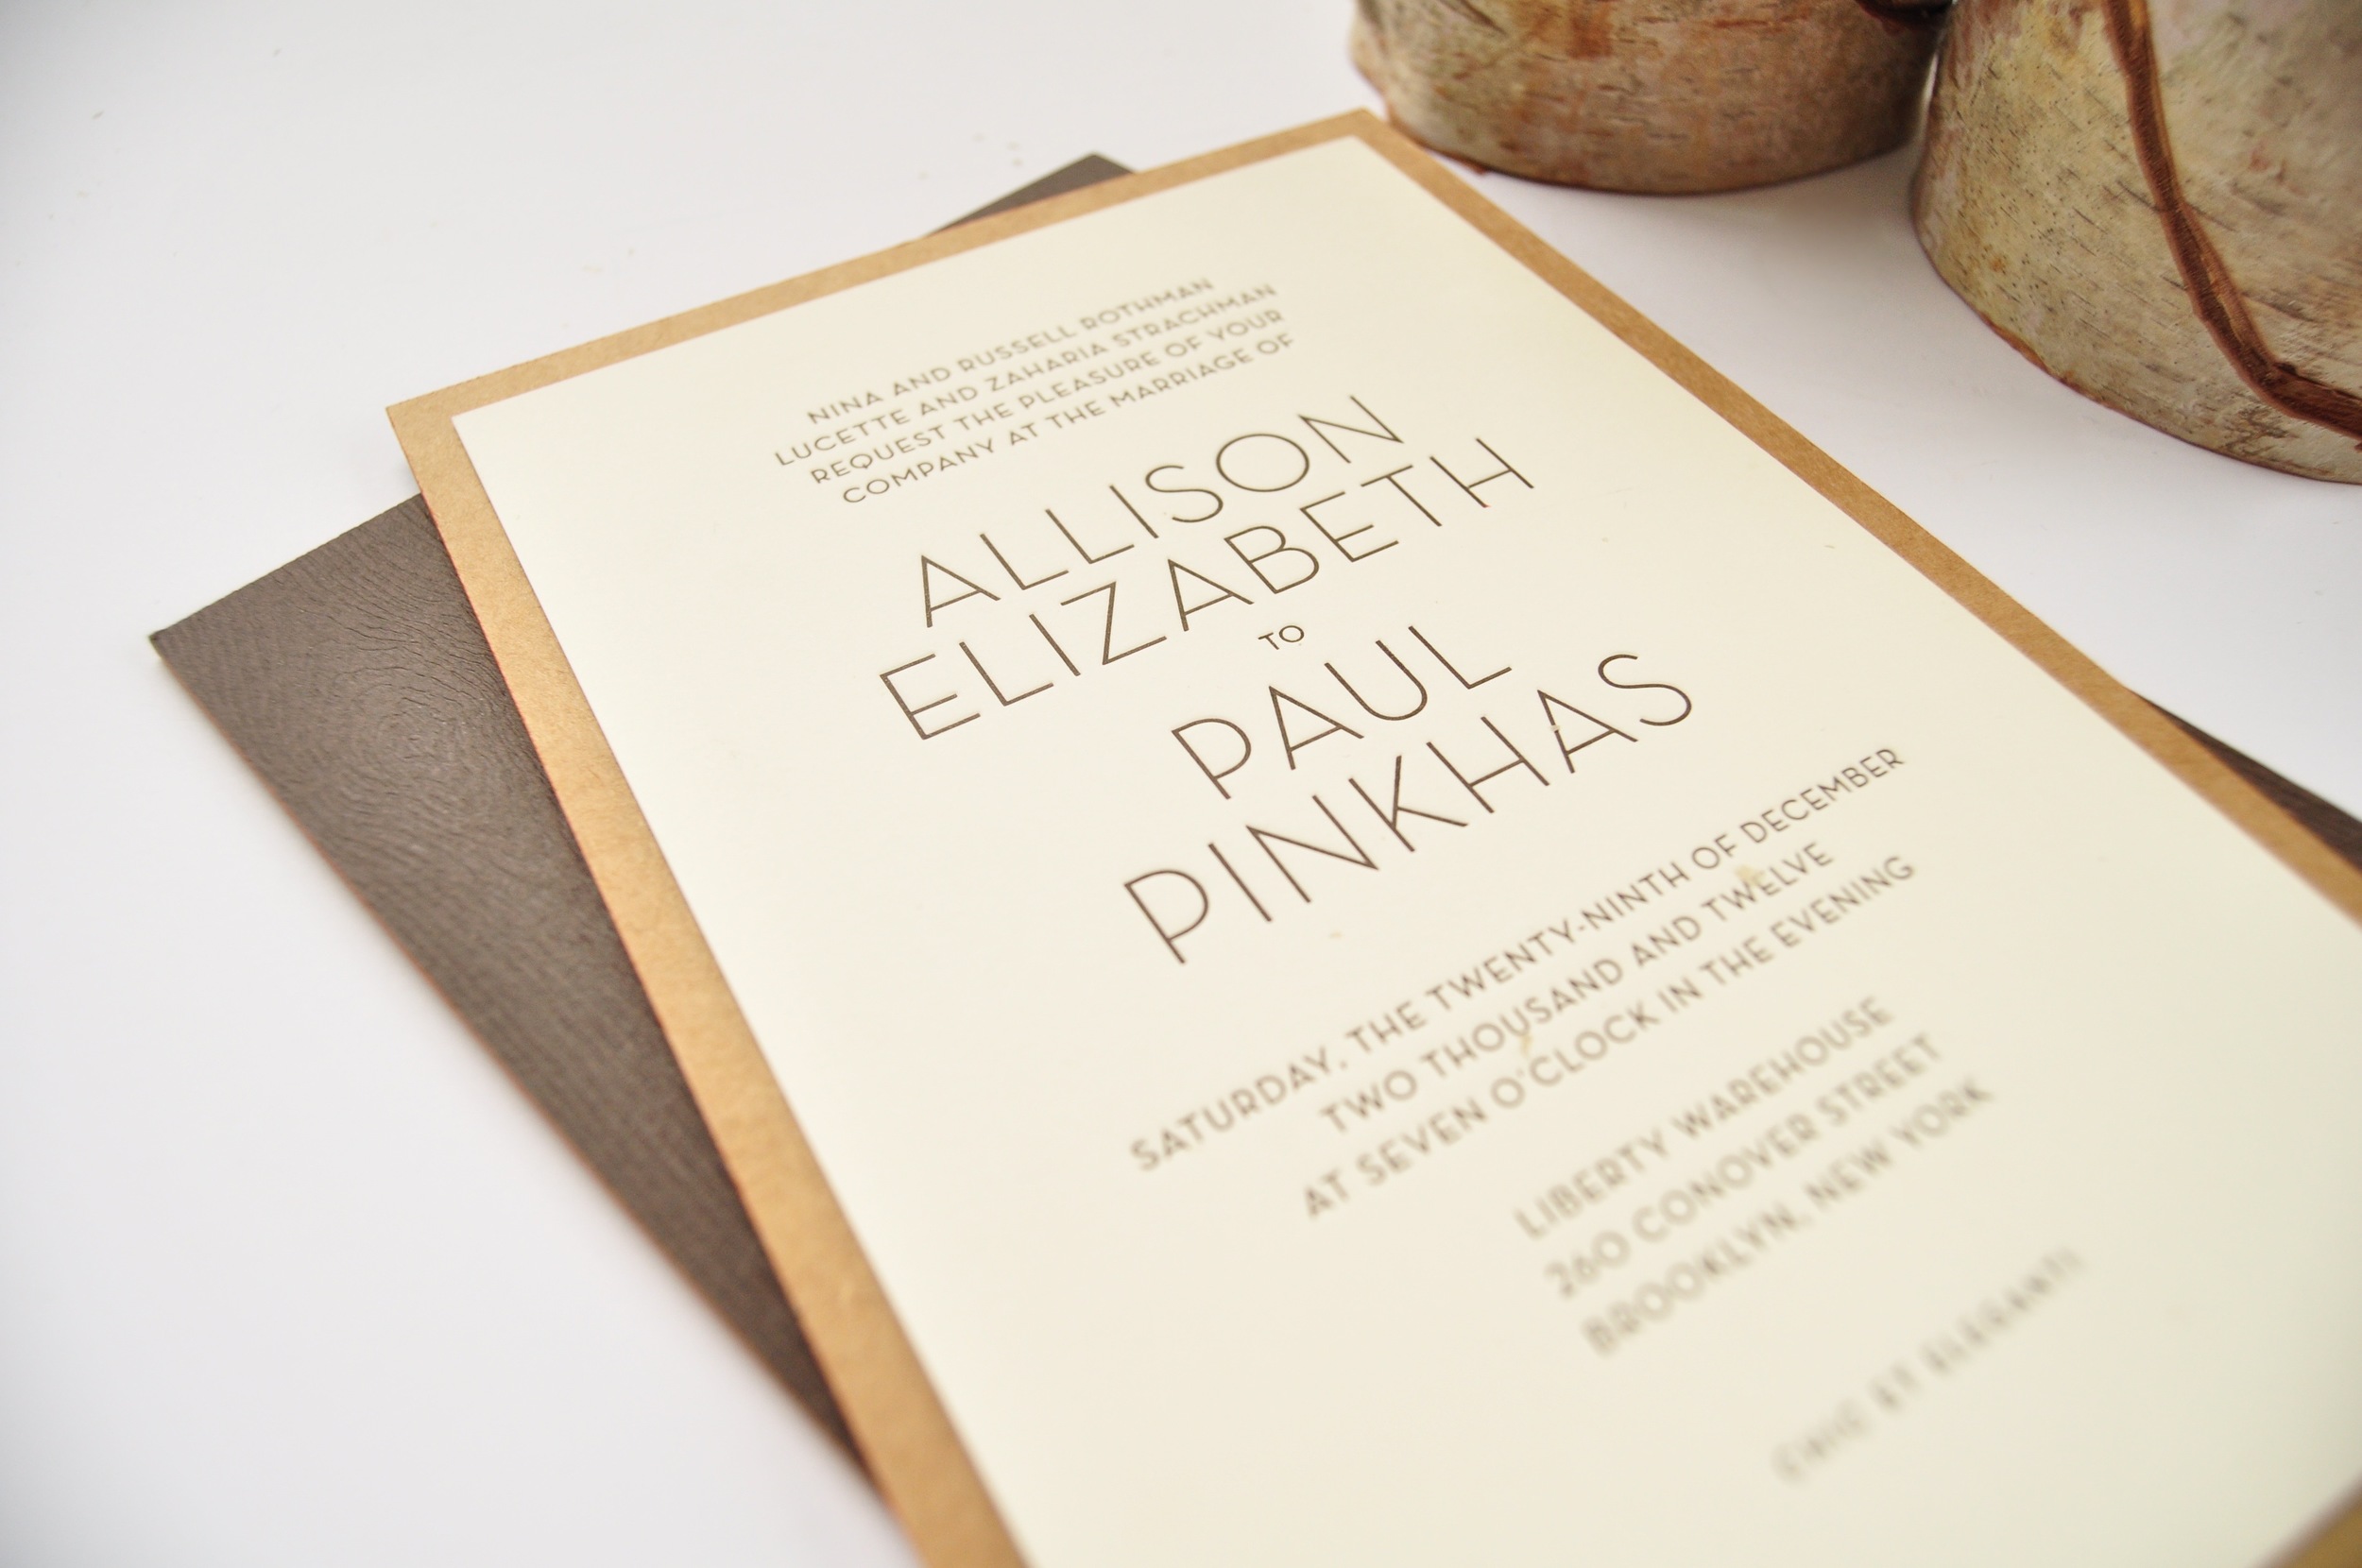 NINA AND RUSSELL ROTHMAN
LUCETTE AND ZAHARIA STRACHMAN
REQUEST THE PLEASURE OF YOUR
COMPANY AT THE MARRIAGE OF
ALLISON
ELIZABETH
TO
PAUL
PINKHAS
SATURDAY, THE TWENTY-NINTH OF DECEMBER
TWO THOUSAND AND TWELVE
AT SEVEN O'CLOCK IN THE EVENING
LIBERTY WAREHOUSE
260 CONOVER STREET
BROOKLYN, NEW YORK